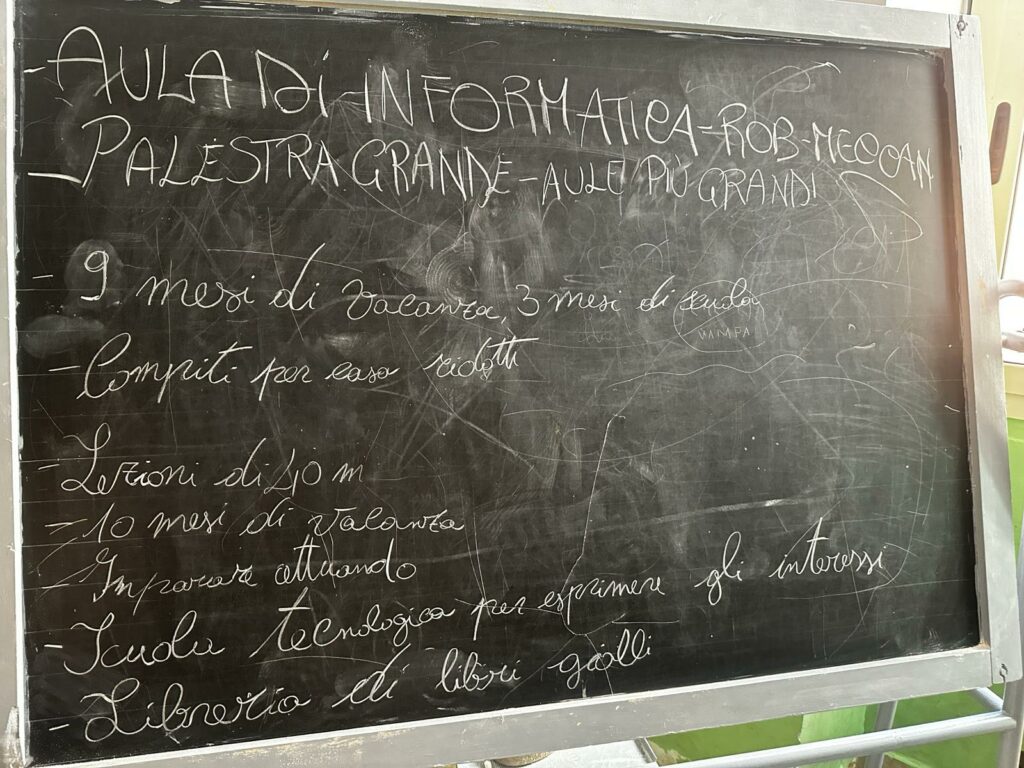 - AULA Di INFORMATICA - ROB - MECCAN
- PALESTRA GRANDE - AULE PIÙ GRANDI
- 9 mesi di vacanza, 3 mesi di scuola
VAMPA
- Compiti per casa ridotti
- Lezioni di 40 m
- 10 mesi di vacanza
- Imparare attuando
- Scuola tecnologica per esprimere gli interessi
- Libreria di libri gialli